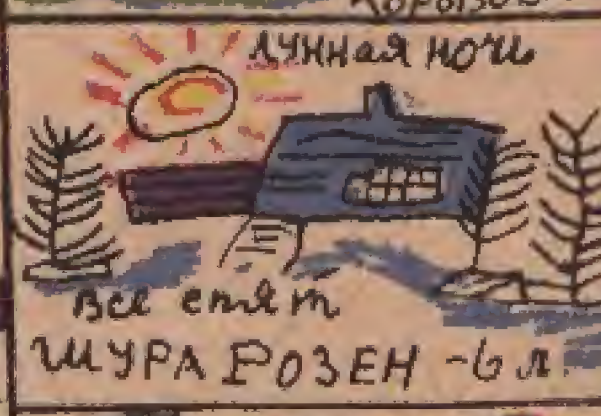 ЛУННАЯ НОЧЬ
все спят
ШУРА РОЗЕН - 6 л.